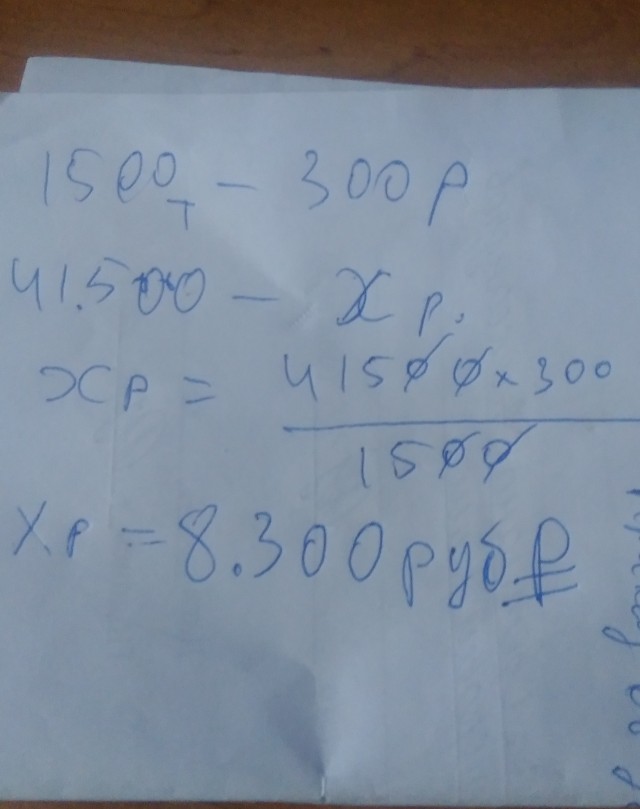 1500т – 300р
41.500 – х р.
хр = 41500 х 300
1500
Хр = 8.300 руб ₽